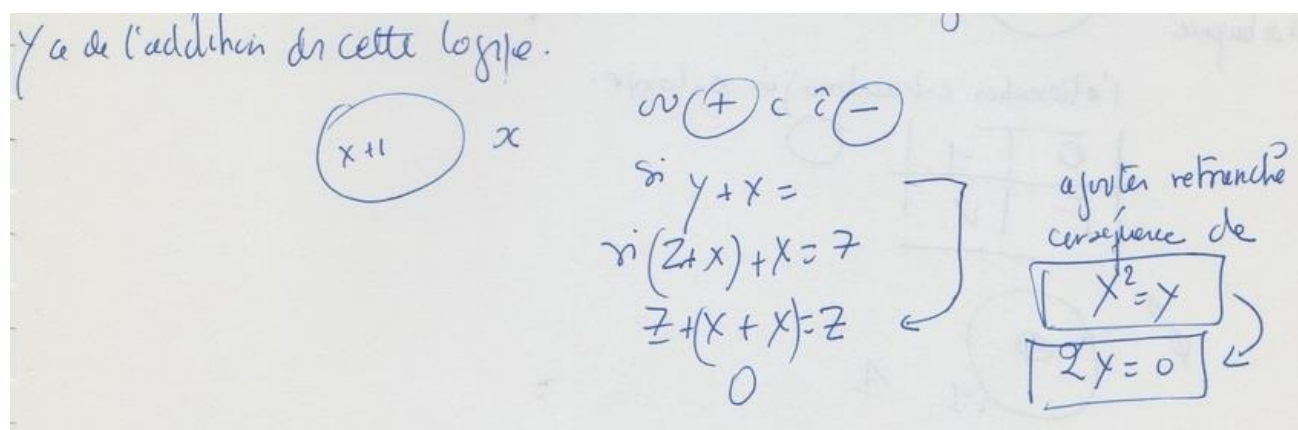 Y a de l'addition ds cette logique.
x+1 x
+ c −
si y + x =
si (Z+x) + x = Z
Z + (x + x) = Z
0
ajouter retranché
conséquence de
x² = y
2y = 0